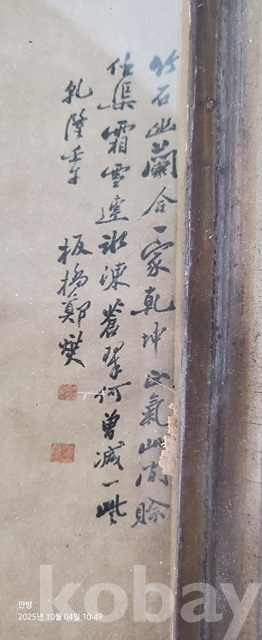 竹石幽蘭合一家乾坤正氣此間賒
任渠霜雪連冰凍蒼翠何曾減一些
乾隆壬午 板橋鄭燮
안방
2025년 10월 04일 10:49
kobay